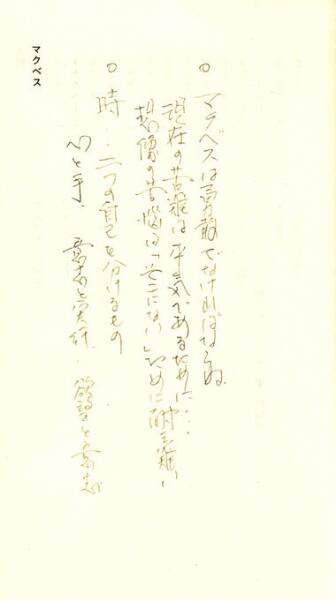 ○ マクベスは勇敢でなければならぬ
現在の苦難は平気であるために…
想像の苦悩は「そこにない」ために耐え難い
○ 時・二つの自己を分けるもの
心と手・意志と実行・欲望と意志
マクベス